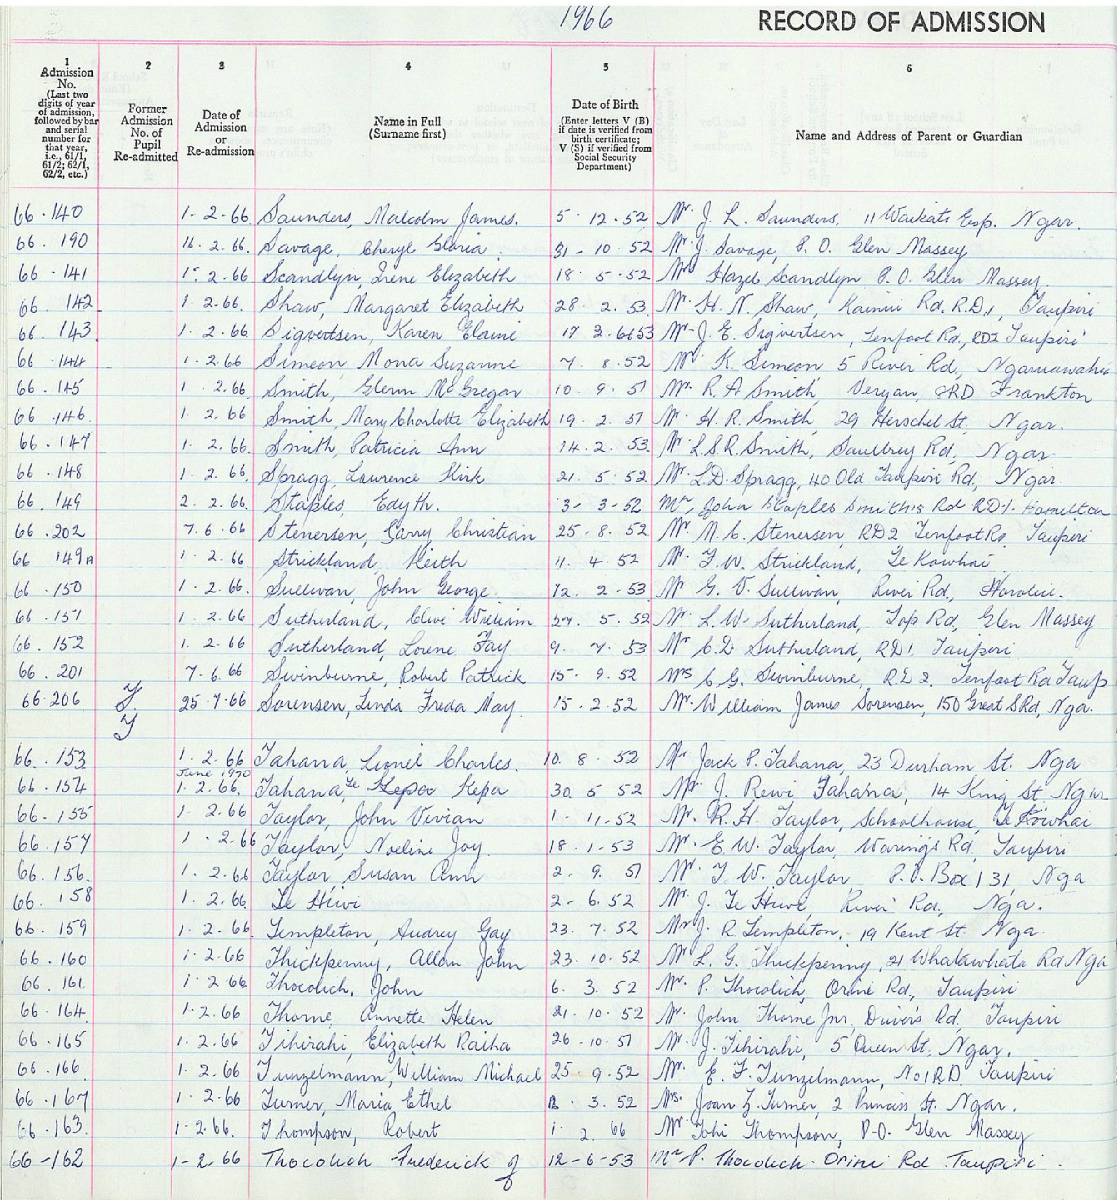 1966 RECORD OF ADMISSION
1 2 3 4 5 6
Admission No. (Last two digits of year of admission, followed by bar and serial number for that year, i.e., 61/1, 61/2; 62/1, 62/2, etc.)
Former Admission No. of Pupil Re-admitted
Date of Admission or Re-admission
Name in Full (Surname first)
Date of Birth (Enter letters V (B) if date is verified from birth certificate; V (S) if verified from Social Security Department)
Name and Address of Parent or Guardian
66.140 1.2.66 Saunders, Malcolm James. 5.12.52 Mr. J. L. Saunders, 11 Waikato Esp. Ngar.
66.190 .2.66. Savage, Cheryl Gloria 31-10.52 Mr. J. Savage, P.O. Glen Massey
66.141 1.2.66 Scandlyn, Irene Elizabeth 18.5.52 Hazel Scandlyn P.O. Glen Massey.
66.142 1.2.66. Shaw, Margaret Elizabeth 28.2.53. Mr. H. N. Shaw, Rd. R.D.1, Taupiri
66.143 1.2.66 Sigvertsen, Karen Elaine 17 Mr. J. E. Sigvertsen, Tenfoot Rd., RD2 Taupiri
66.144 1.2.66 Simeon Mona Suzanne 7.8.52 Mr. K. Simeon 5 River Rd, Ngaruawahia
66.145 1.2.66 Smith, Glenn McGregor 10 9.51 Mr. R. A Smith, RD Frankton
66.146. 1.2.66. Smith Mary Charlotte Elizabeth 19.2.51 Mr. H. R. Smith, 29 Herschel St, Ngar.
66.147 1.2.66. Smith, Patricia Ann 14.2.53 Mr. L.S.R. Smith, Saulbrey Rd, Ngar
66.148 1.2.66. Spragg, Lawrence Kirk 21.5.52 Mr. L.D. Spragg, 40 Old Taupiri Rd, Ngar.
66.149 2.2.66. Staples, Edyth. 3-3-52 Mr John Staples Rd RD1. Hamilton
66.202 7.6.66 Stenersen, Garry Christian 25.8.52 Mr. N. C. Stenersen, RD2 Tenfoot Rd, Taupiri
66 149A 1.2.66 Strickland, Keith 11.4.52 Mr. F. W. Strickland, Te Kowhai
66.150 1.2.66. Sullivan, John George. 12.2.53. Mr G. V. Sullivan, River Rd, Horotiu.
66.151 1.2.66 Sutherland, Clive William 27.5.52 Mr. L. W. Sutherland, Top Rd, Glen Massey
66.152 1.2.66 Sutherland, Lorene Fay 9.7.53 Mr C.D Sutherland, RD1 Taupiri
66.201 7.6.66 Swinburne, Robert Patrick 15-9.52 Mrs C. G. Swinburne, R.D 2. Tenfoot Rd Taup
66-206 25.7.66 Sorensen, Linda Freda May. 15-2.52 Mr. William James Sorensen, 150 Great S Rd, Nga.
66.153 1.2.66 Tahana, Lionel Charles. 10.8.52 Mr Jack P. Tahana, 23 Durham St. Nga
June 1970
66.154 1.2.66. Tahana, Te Kepa 30 5 52 Mr J. Rewi Tahana, 14 King St, Ngar
66.155 1.2.66 Taylor, John Vivian 1-11.52 Mr. R. H. Taylor, Schoolhouse, Te Kowhai
66.157 1.2.66 Taylor, Noeline Joy. 18.1-53 Mr. E. W. Taylor, Warings Rd, Taupiri
66.156. 1.2.66 Taylor, Susan Ann 2.9.51 Mr. T. W. Taylor, P.O. Box 131, Nga
66.158 1.2.66. Te Hiwi 2-6.52 Mr. J. Te Hiwi, River Rd, Nga.
66.159 1.2.66. Templeton, Audrey Gay 23.7.52 Mr J. R Templeton, 19 Kent St. Nga.
66.160 1.2.66 Thickpenny, Allan John 23.10.52 Mr L. G. Thickpenny, 21 Whatawhata Rd Nga
66.161. 1.2.66 Thocolich, John 6.3.52 Mr. P. Thocolich, Orini Rd, Taupiri
66.164 1.2.66 Thorne, Annette Helen 21.10.52 Mr. John Thorne Jnr, Rd, Taupiri
66.165 1.2.66 Tihirahi, Elizabeth Raiha 26-10.51 Mr. J. Tihirahi, 5 Queen St. Ngar.
66.166. 1.2.66 Tunzelmann, William Michael 25.9.52 Mr. E. F. Tunzelmann, No 1 RD Taupiri
66.167 1.2.66 Turner, Maria Ethel 3.52 Mrs. Joan Turner, 2 Princess St. Ngar.
66.163. 1.2.66. Thompson, Robert 1 2 66 Mr Tohi Thompson, P.O. Glen Massey
66-162 1-2.66 Thocolich Frederick 12-6-53 Mr P. Thocolich. Orini Rd Taupiri.